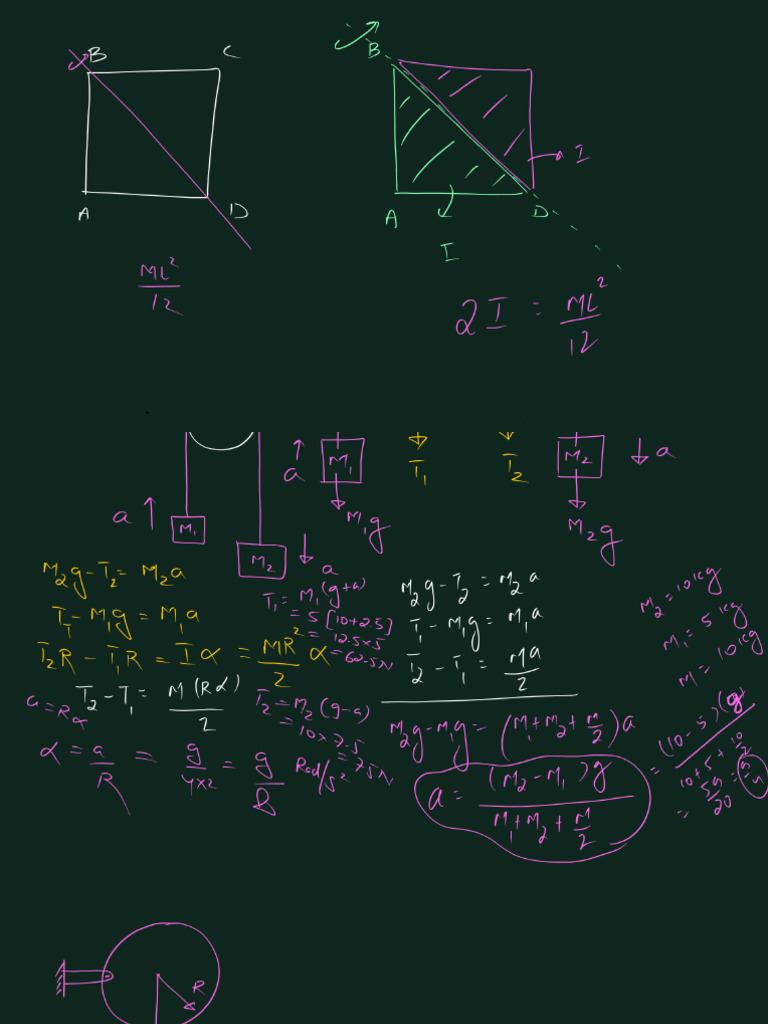 B C
A D
ML²/12
B
I
A D
I
2I = ML²/12
a M₁ T₁ T₂ M₂ a
M₁g M₂g
a M₁
M₂ a
M₂g - T₂ = M₂a
T₁ - M₁g = M₁a
T₂R - T₁R = Iα = MR²/2 α
a = Rα
T₂ - T₁ = M(Rα)/2
α = a/R = g/4×2 = g/8 Rad/s²
T₁ = M₁(g+a)
= 5[10+2.5]
= 12.5×5
= 62.5N
T₂ = M₂(g-a)
= 10×7.5
= 75N
M₂g - T₂ = M₂a
T₁ - M₁g = M₁a
T₂ - T₁ = Ma/2
M₂g - M₁g = (M₁+M₂+M/2)a
a = (M₂-M₁)g/M₁+M₂+M/2
M₂ = 10kg
M₁ = 5kg
M = 10kg
= (10-5)(g)/10+5+10/2
= 5g/20 = g/4
R